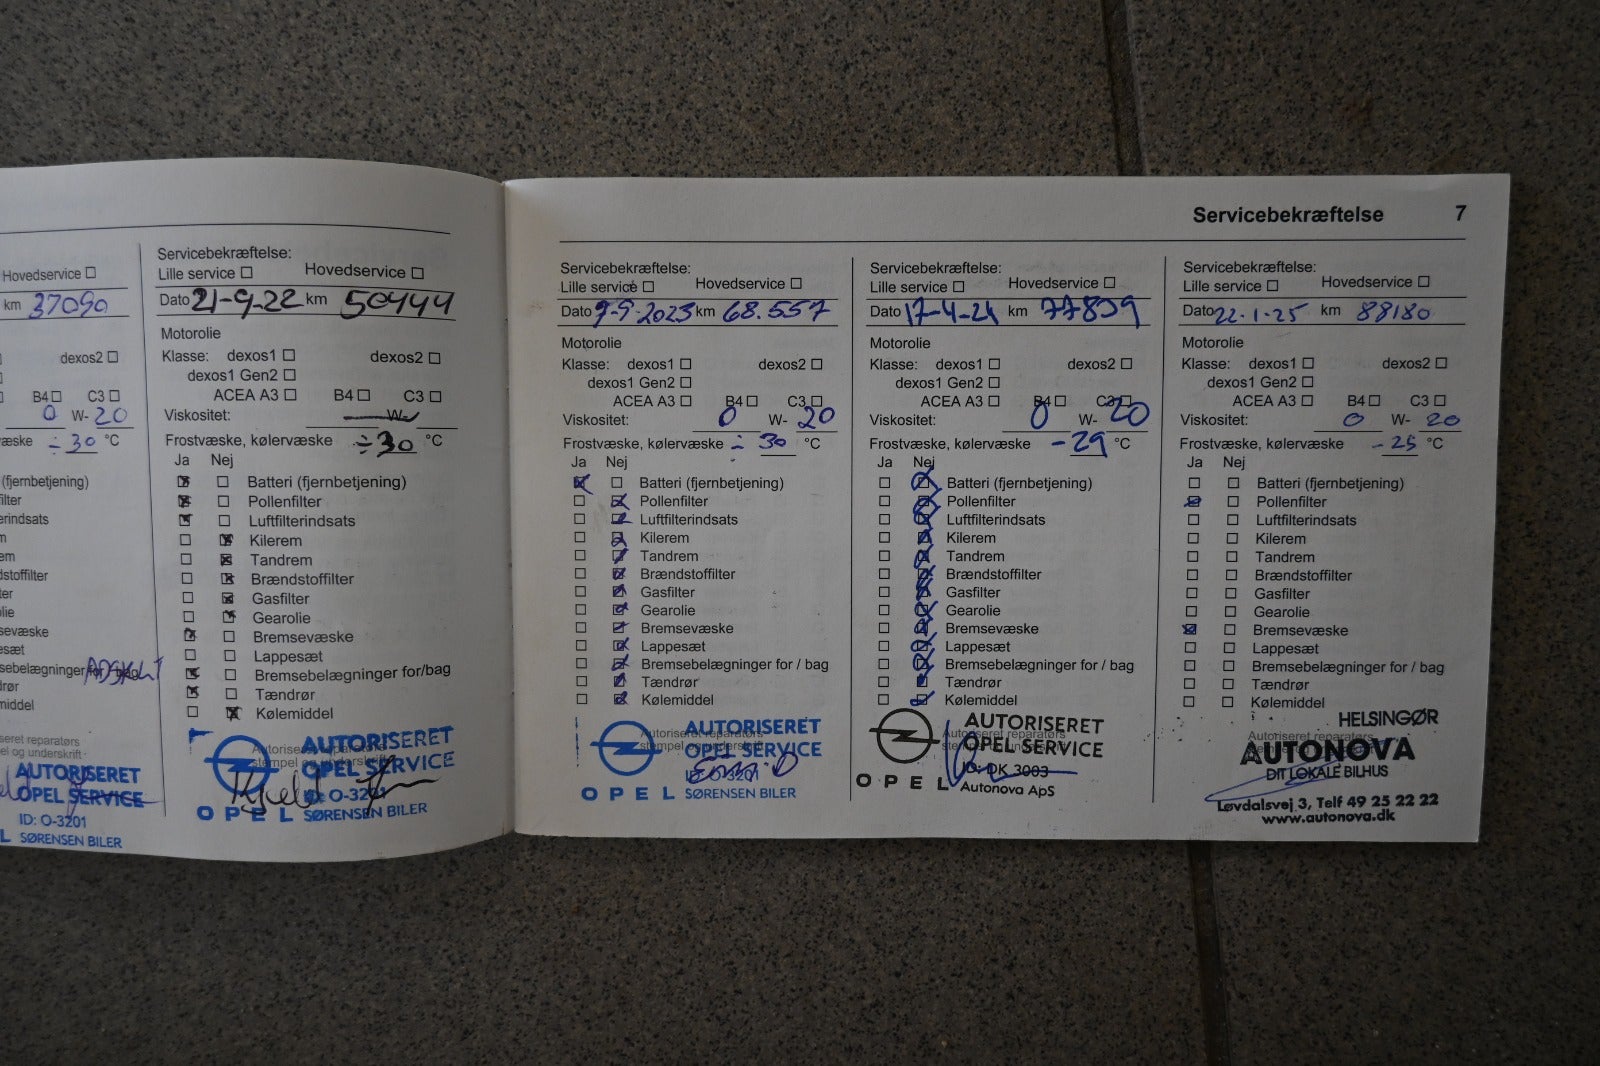 Hovedservice
km 37090
dexos2
B4 C3
0 W- 20
æske ÷ 30 °C
(fjernbetjening)
filter
erindsats
m
em
dstoffilter
ter
olie
sevæske
esæt
sebelægninger for / bag
ADSKILT
drør
middel
seret reparatørs
el og underskrift
AUTORISERET
OPEL SERVICE
ID: O-3201
L SØRENSEN BILER
Servicebekræftelse:
Lille service Hovedservice
Dato 21-9-22 km 50444
Motorolie
Klasse: dexos1 dexos2
dexos1 Gen2
ACEA A3 B4 C3
Viskositet: W-
Frostvæske, kølervæske ÷30 °C
Ja Nej
Batteri (fjernbetjening)
Pollenfilter
Luftfilterindsats
Kilerem
Tandrem
Brændstoffilter
Gasfilter
Gearolie
Bremsevæske
Lappesæt
Bremsebelægninger for/bag
Tændrør
Kølemiddel
Autoriseret reparatørs
stempel og underskrift
AUTORISERET
OPEL SERVICE
ID: O-3201
OPEL SØRENSEN BILER
Servicebekræftelse 7
Servicebekræftelse:
Lille service Hovedservice
Dato 9-9-2023 km 68.557
Motorolie
Klasse: dexos1 dexos2
dexos1 Gen2
ACEA A3 B4 C3
Viskositet: 0 W- 20
Frostvæske, kølervæske ÷ 30 °C
Ja Nej
Batteri (fjernbetjening)
Pollenfilter
Luftfilterindsats
Kilerem
Tandrem
Brændstoffilter
Gasfilter
Gearolie
Bremsevæske
Lappesæt
Bremsebelægninger for / bag
Tændrør
Kølemiddel
Autoriseret reparatørs
stempel og underskrift
AUTORISERET
OPEL SERVICE
OPEL SØRENSEN BILER
Servicebekræftelse:
Lille service Hovedservice
Dato 17-4-24 km 77839
Motorolie
Klasse: dexos1 dexos2
dexos1 Gen2
ACEA A3 B4 C3
Viskositet: 0 W- 20
Frostvæske, kølervæske -29 °C
Ja Nej
Batteri (fjernbetjening)
Pollenfilter
Luftfilterindsats
Kilerem
Tandrem
Brændstoffilter
Gasfilter
Gearolie
Bremsevæske
Lappesæt
Bremsebelægninger for / bag
Tændrør
Kølemiddel
Autoriseret reparatørs
stempel og underskrift
AUTORISERET
OPEL SERVICE
ID: DK 3003
OPEL Autonova ApS
Servicebekræftelse:
Lille service Hovedservice
Dato 22-1-25 km 88180
Motorolie
Klasse: dexos1 dexos2
dexos1 Gen2
ACEA A3 B4 C3
Viskositet: 0 W- 20
Frostvæske, kølervæske -25 °C
Ja Nej
Batteri (fjernbetjening)
Pollenfilter
Luftfilterindsats
Kilerem
Tandrem
Brændstoffilter
Gasfilter
Gearolie
Bremsevæske
Lappesæt
Bremsebelægninger for / bag
Tændrør
Kølemiddel
Autoriseret reparatørs
HELSINGØR
AUTONOVA
DIT LOKALE BILHUS
Løvdalsvej 3, Telf 49 25 22 22
www.autonova.dk